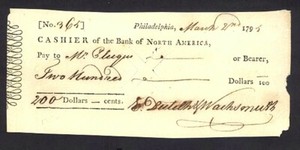 [No. 365] Philadelphia, March 3rd 1795
CASHIER of the Bank of NORTH AMERICA,
Pay to Mr. or Bearer,
Two Hundred Dollars 100
200 Dollars — cents. E. Dutilh & Wachsmuth